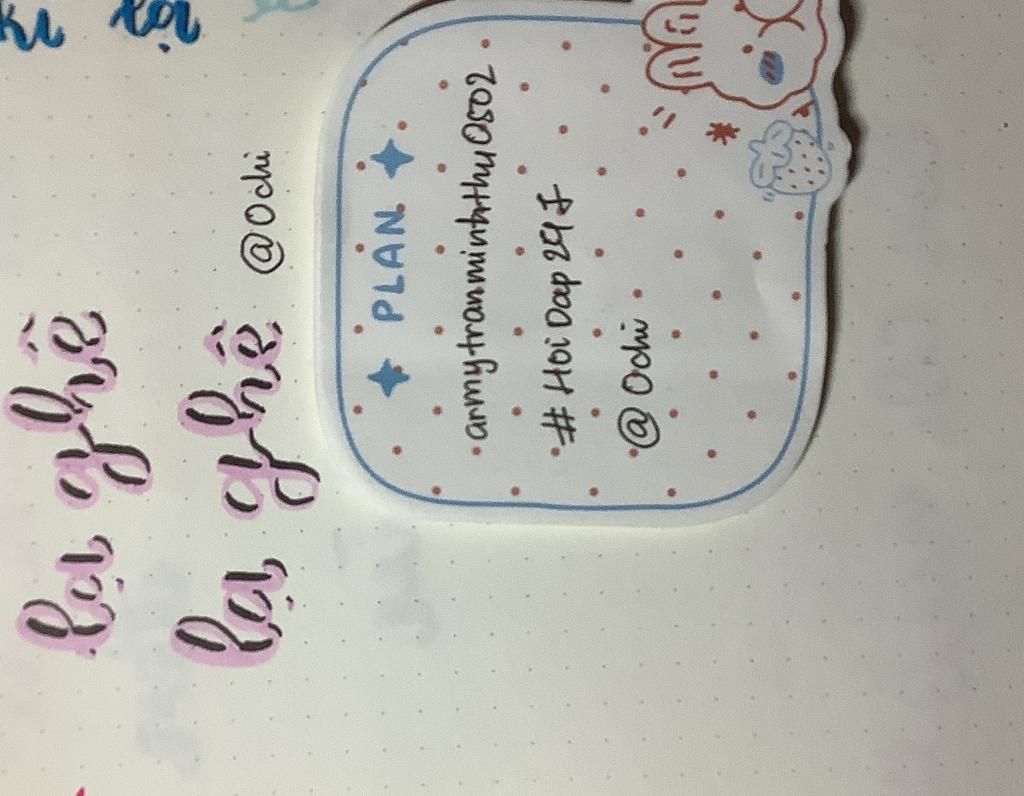 lạ
lạ ghê
lạ ghê
@Ochi
PLAN
armytranminhthu0502
#HoiDap247
@Ochi